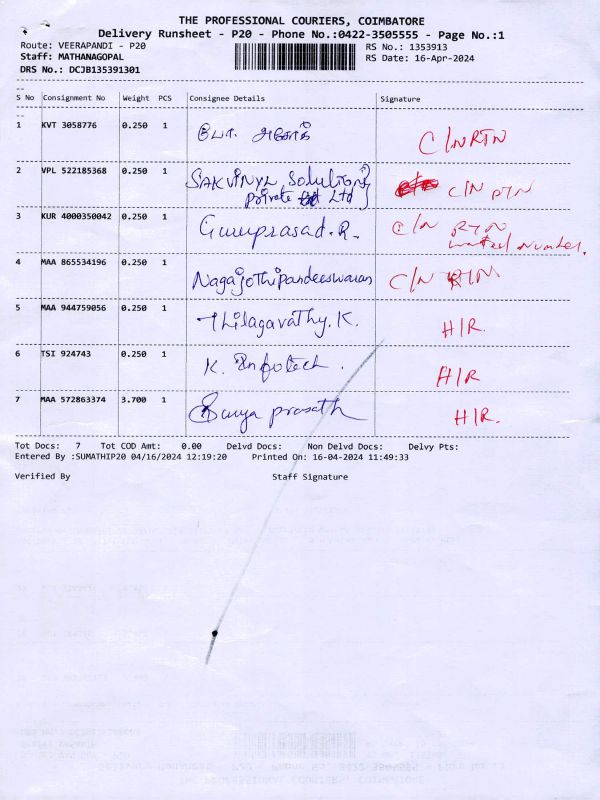 THE PROFESSIONAL COURIERS, COIMBATORE
Delivery Runsheet - P20 - Phone No.:0422-3505555 - Page No.:1
Route: VEERAPANDI - P20 RS No.: 1353913
Staff: MATHANAGOPAL RS Date: 16-Apr-2024
DRS No.: DCJB135391301
S No Consignment No Weight PCS Consignee Details Signature
1 KVT 3058776 0.250 1 C/N RTN
2 VPL 522185368 0.250 1 SAKVINYL Solutions Private Ltd C/N RTN
3 KUR 4000350042 0.250 1 Guruprasad.R. C/N RTN number.
4 MAA 865534196 0.250 1 Nagajothipandeeswaran C/N RTN
5 MAA 944759056 0.250 1 Thilagavathy.K. H/R.
6 TSI 924743 0.250 1 K. Infotech. H/R
7 MAA 572863374 3.700 1 Surya prasath H/R.
Tot Docs: 7 Tot COD Amt: 0.00 Delvd Docs: Non Delvd Docs: Delvy Pts:
Entered By :SUMATHIP20 04/16/2024 12:19:20 Printed On: 16-04-2024 11:49:33
Verified By Staff Signature